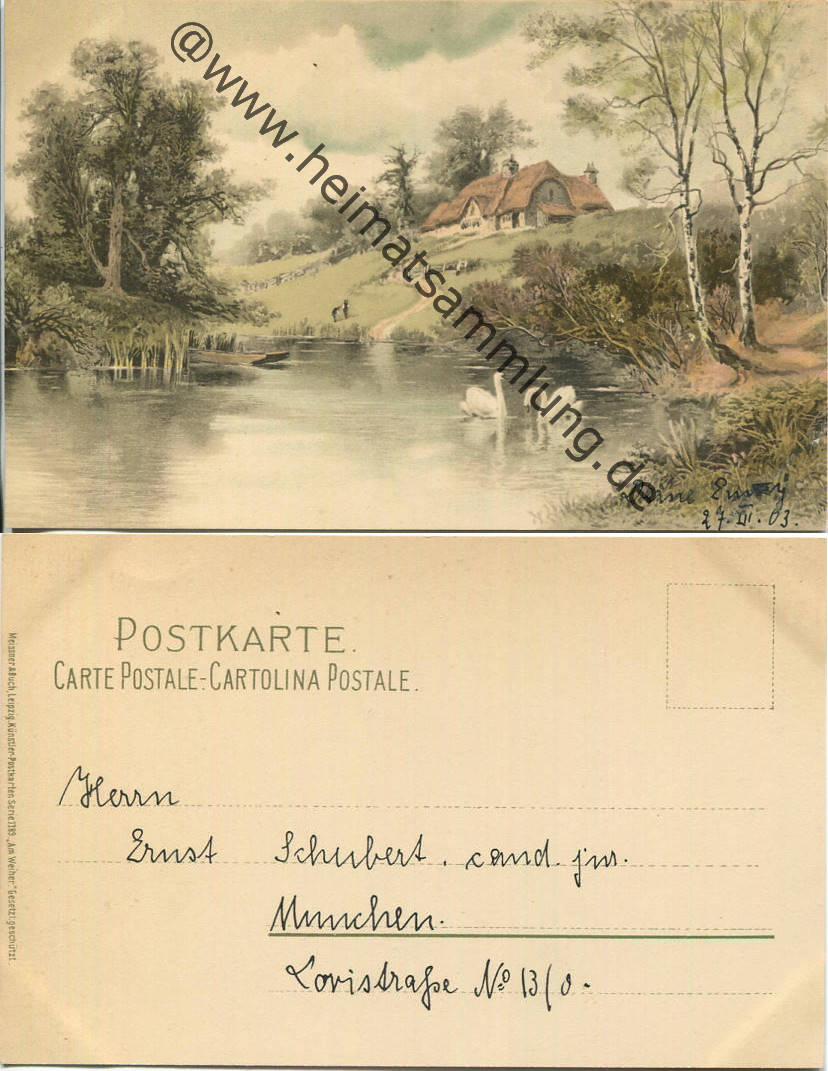 @www.heimatsammlung.de
27. III. 03.
POSTKARTE.
CARTE POSTALE-CARTOLINA POSTALE.
Meissner & Buch, Leipzig. Künstler-Postkarten Serie 1189. „Am Weiher." Gesetzl. geschützt.
Herrn
Ernst Schubert. cand. jur.
München.
Loristraße No 13/0.